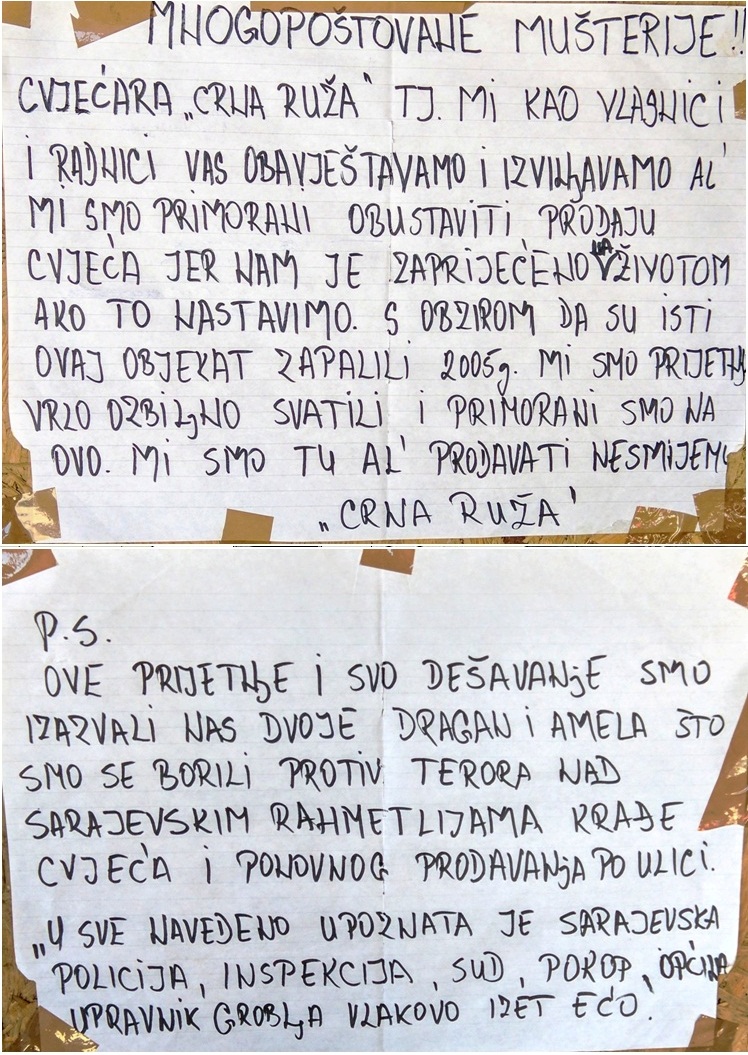 MNOGOPOŠTOVANE MUŠTERIJE!!
CVJEĆARA „CRNA RUŽA“ TJ. MI KAO VLASNICI
I RADNICI VAS OBAVJEŠTAVAMO I IZVINJAVAMO AL'
MI SMO PRIMORANI OBUSTAVITI PRODAJU
CVJEĆA JER NAM JE ZAPRIJEĆENO NA ŽIVOTOM
AKO TO NASTAVIMO. S OBZIROM DA SU ISTI
OVAJ OBJEKAT ZAPALILI 2005g. MI SMO PRIJETNJ
VRLO OZBILJNO SVATILI I PRIMORANI SMO NA
OVO. MI SMO TU AL' PRODAVATI NESMIJEMO
„CRNA RUŽA“
P.S.
OVE PRIJETNJE I SVO DEŠAVANJE SMO
IZAZVALI NAS DVOJE DRAGAN I AMELA ŠTO
SMO SE BORILI PROTIV TERORA NAD
SARAJEVSKIM RAHMETLIJAMA KRAĐE
CVJEĆA I PONOVNOG PRODAVANJA PO ULICI.
„U SVE NAVEDENO UPOZNATA JE SARAJEVSKA
POLICIJA, INSPEKCIJA, SUD, POKOP, OPĆINA
UPRAVNIK GROBLJA VLAKOVO IZET EĆO.“